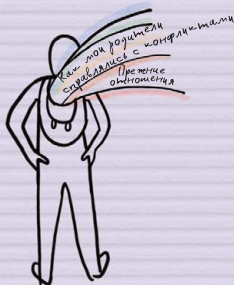 Как мои родители
справлялись с конфликтами
Прежние
отношения